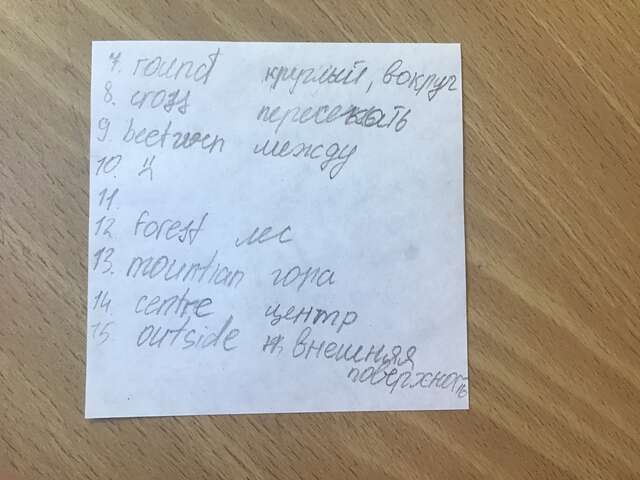 7. round круглый, вокруг
8. cross пересекать
9. beetwen между
10. ц
11.
12. forest лес
13. mountian гора
14. centre центр
15. outside внешняя
поверхность